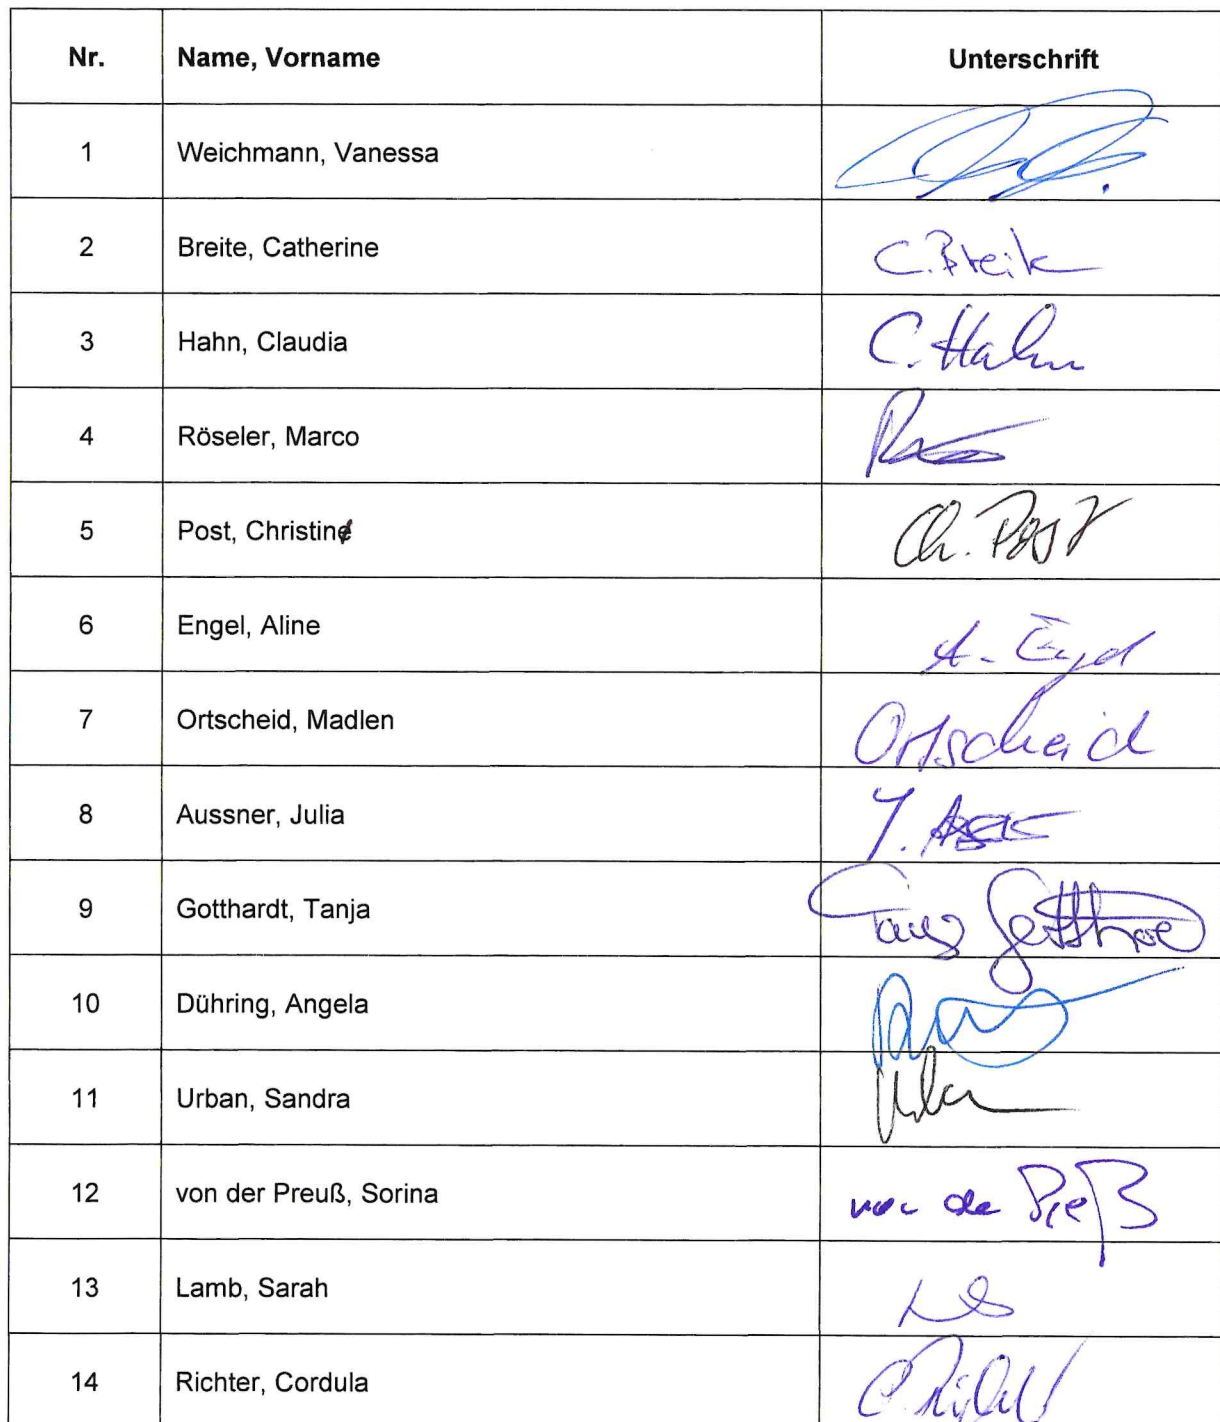 Nr. Name, Vorname Unterschrift
1 Weichmann, Vanessa
2 Breite, Catherine C. Breite
3 Hahn, Claudia C. Hahn
4 Röseler, Marco
5 Post, Christine Ch. Post
6 Engel, Aline A. Engel
7 Ortscheid, Madlen Ortscheid
8 Aussner, Julia J.
9 Gotthardt, Tanja Tanja Gotthardt
10 Dühring, Angela
11 Urban, Sandra
12 von der Preuß, Sorina von der Preuß
13 Lamb, Sarah
14 Richter, Cordula C. Richter